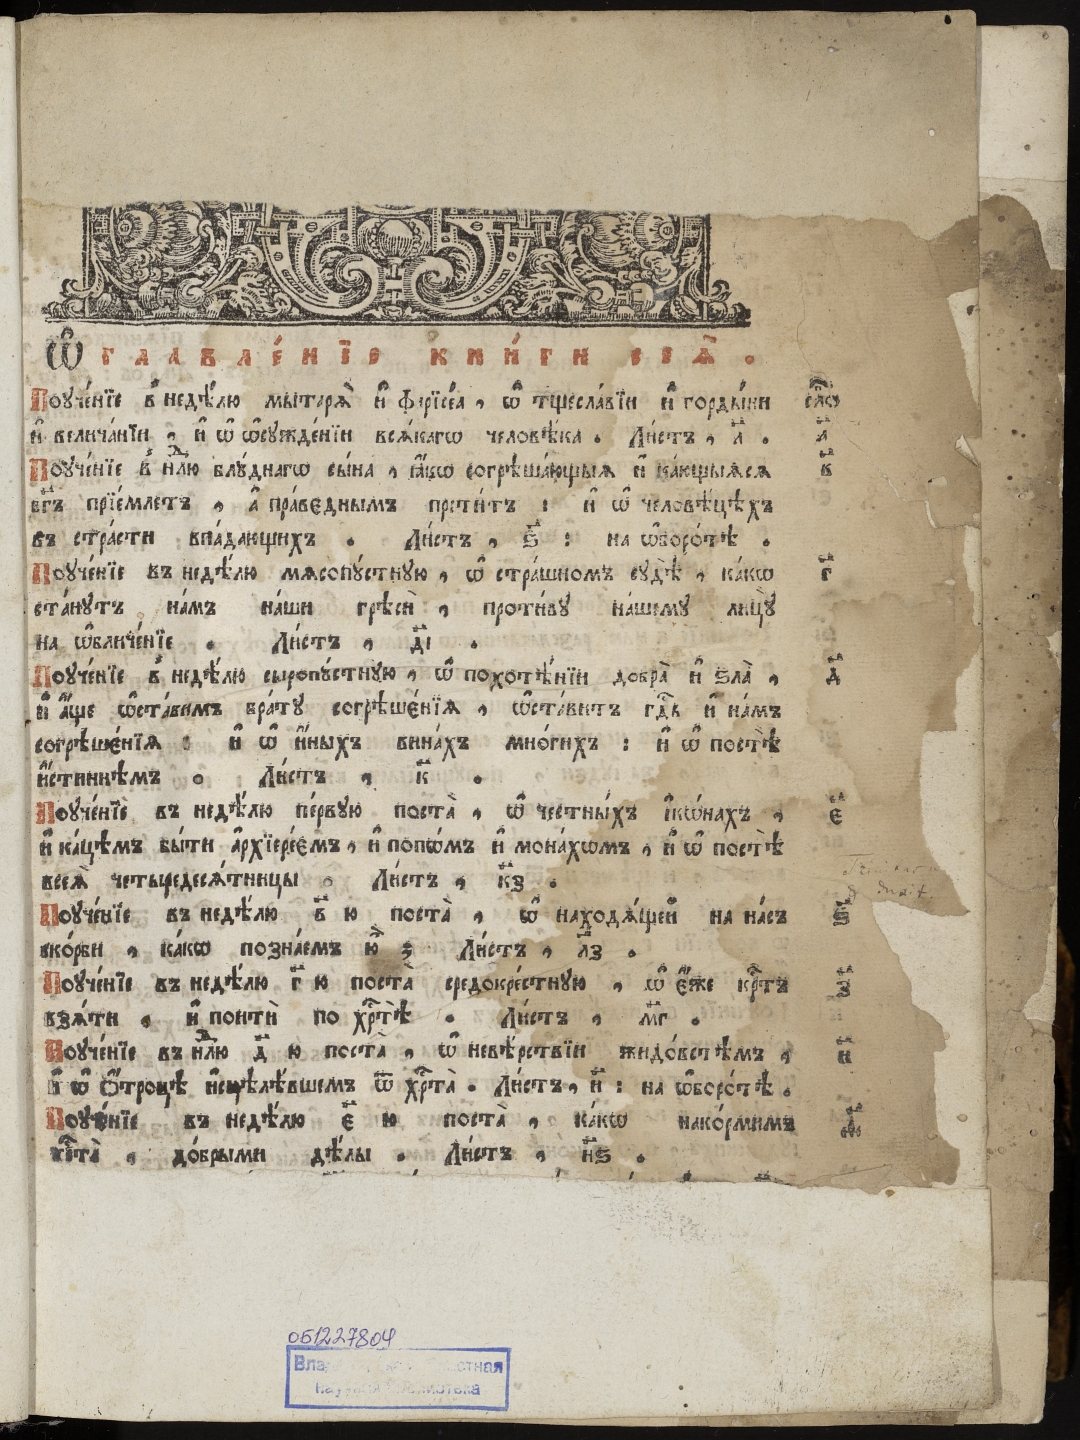 Ѡ҆главле́нїе кни́ги сея̀ .
Поуче́нїе в̾ недѣ́лю мытаря̀ и҆ фарїсе́а , ѡ҆ тщесла́вїи и҆ горды́ни сло́
и҆ велича́нїи , и҆ ѡ҆ ѡ҆сужде́нїи вся́кагѡ человѣ́ка . Ли́стъ , а҃ . а҃
Поуче́нїе в̾ нⷣлю блу́днагѡ сы́на , ꙗ҆́кѡ согрѣша́ющыя и҆ ка́ющыяся в҃
бг҃ъ прїе́млетъ , а҆ пра́веднымъ прети́тъ : и҆ ѡ҆ человѣ́цѣхъ
въ стра́сти впа́дающихъ . Ли́стъ , ѕ҃ : на ѡ҆боро́тѣ .
Поуче́нїе въ недѣ́лю мясопу́стную , ѡ҆ стра́шномъ судѣ̀ , ка́кѡ г҃
ста́нутъ на́мъ на́ши грѣсѝ , проти́ву на́шему лицу̀
на ѡ҆бличе́нїе . Ли́стъ , д҃і .
Поуче́нїе в̾ недѣ́лю сыропу́стную , ѡ҆ похотѣ́нїи добра̀ и҆ ѕла̀ , д҃
и҆ а҆́ще ѡ҆ста́вимъ бра́ту согрѣше́нїя , ѡ҆ста́витъ гдⷭ҇ь и҆ на́мъ
согрѣше́нїя : и҆ ѡ҆ и҆́ныхъ вина́хъ мно́гихъ : и҆ ѡ҆ постѣ̀
и҆́стиннѣмъ . Ли́стъ , к҃ .
Поуче́нїе въ недѣ́лю пе́рвую поста̀ , ѡ҆ честны́хъ і҆кѡ́нахъ , є҃
и҆ ка́цѣмъ бы́ти а҆рхїере́ѡмъ , и҆ попѡ́мъ и҆ мона́хѡмъ , и҆ ѡ҆ постѣ̀
всея̀ четыредеся́тницы . Ли́стъ , к҃з .
Поуче́нїе въ недѣ́лю в҃ ю поста̀ , ѡ҆ находя́щей на на́съ ѕ҃
ско́рби , ка́кѡ позна́емъ ю҆̀ ; Ли́стъ , л҃з .
Поуче́нїе въ недѣ́лю г҃ ю поста̀ средокре́стную , ѡ҆ є҆́же крⷭ҇тъ з҃
взя́ти , и҆ поитѝ по хрⷭ҇тѣ̀ . Ли́стъ , м҃г .
Поуче́нїе въ нⷣлю д҃ ю поста̀ , ѡ҆ невѣ́рствїи жидо́встѣмъ , и҃
и҆ ѡ҆ ѻ҆́троцѣ и҆сцѣлѣ́вшемъ ѿ хрⷭ҇та̀ . Ли́стъ , н҃ : на ѡ҆боро́тѣ .
Поуче́нїе въ недѣ́лю є҃ ю поста̀ , ка́кѡ нако́рмимъ ѳ҃
хрⷭ҇та̀ , до́брыми дѣ́лы . Ли́стъ , н҃ѕ .
051227804
научная библиотека